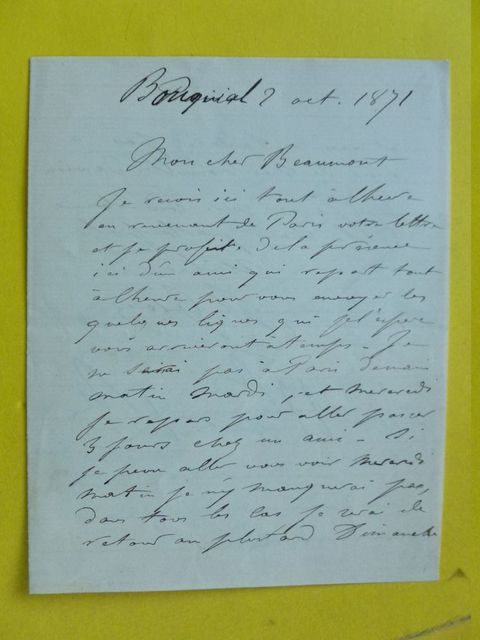 Bougival 2 oct. 1871
Mon cher Beaumont
Je reçois ici tout à l'heure
en revenant de Paris votre lettre
et je profite de la présence
ici d'un ami qui repart tout
à l'heure pour vous envoyer les
quelques lignes qui j'espère
vous arriveront à temps - Je
ne serai pas à Paris demain
matin mardi, et mercredi
je repars pour aller passer
3 jours chez un ami - Si
je peux aller vous voir mercredi
matin je n'y manquerai pas,
dans tous les cas je serai de
retour au plus tard Dimanche